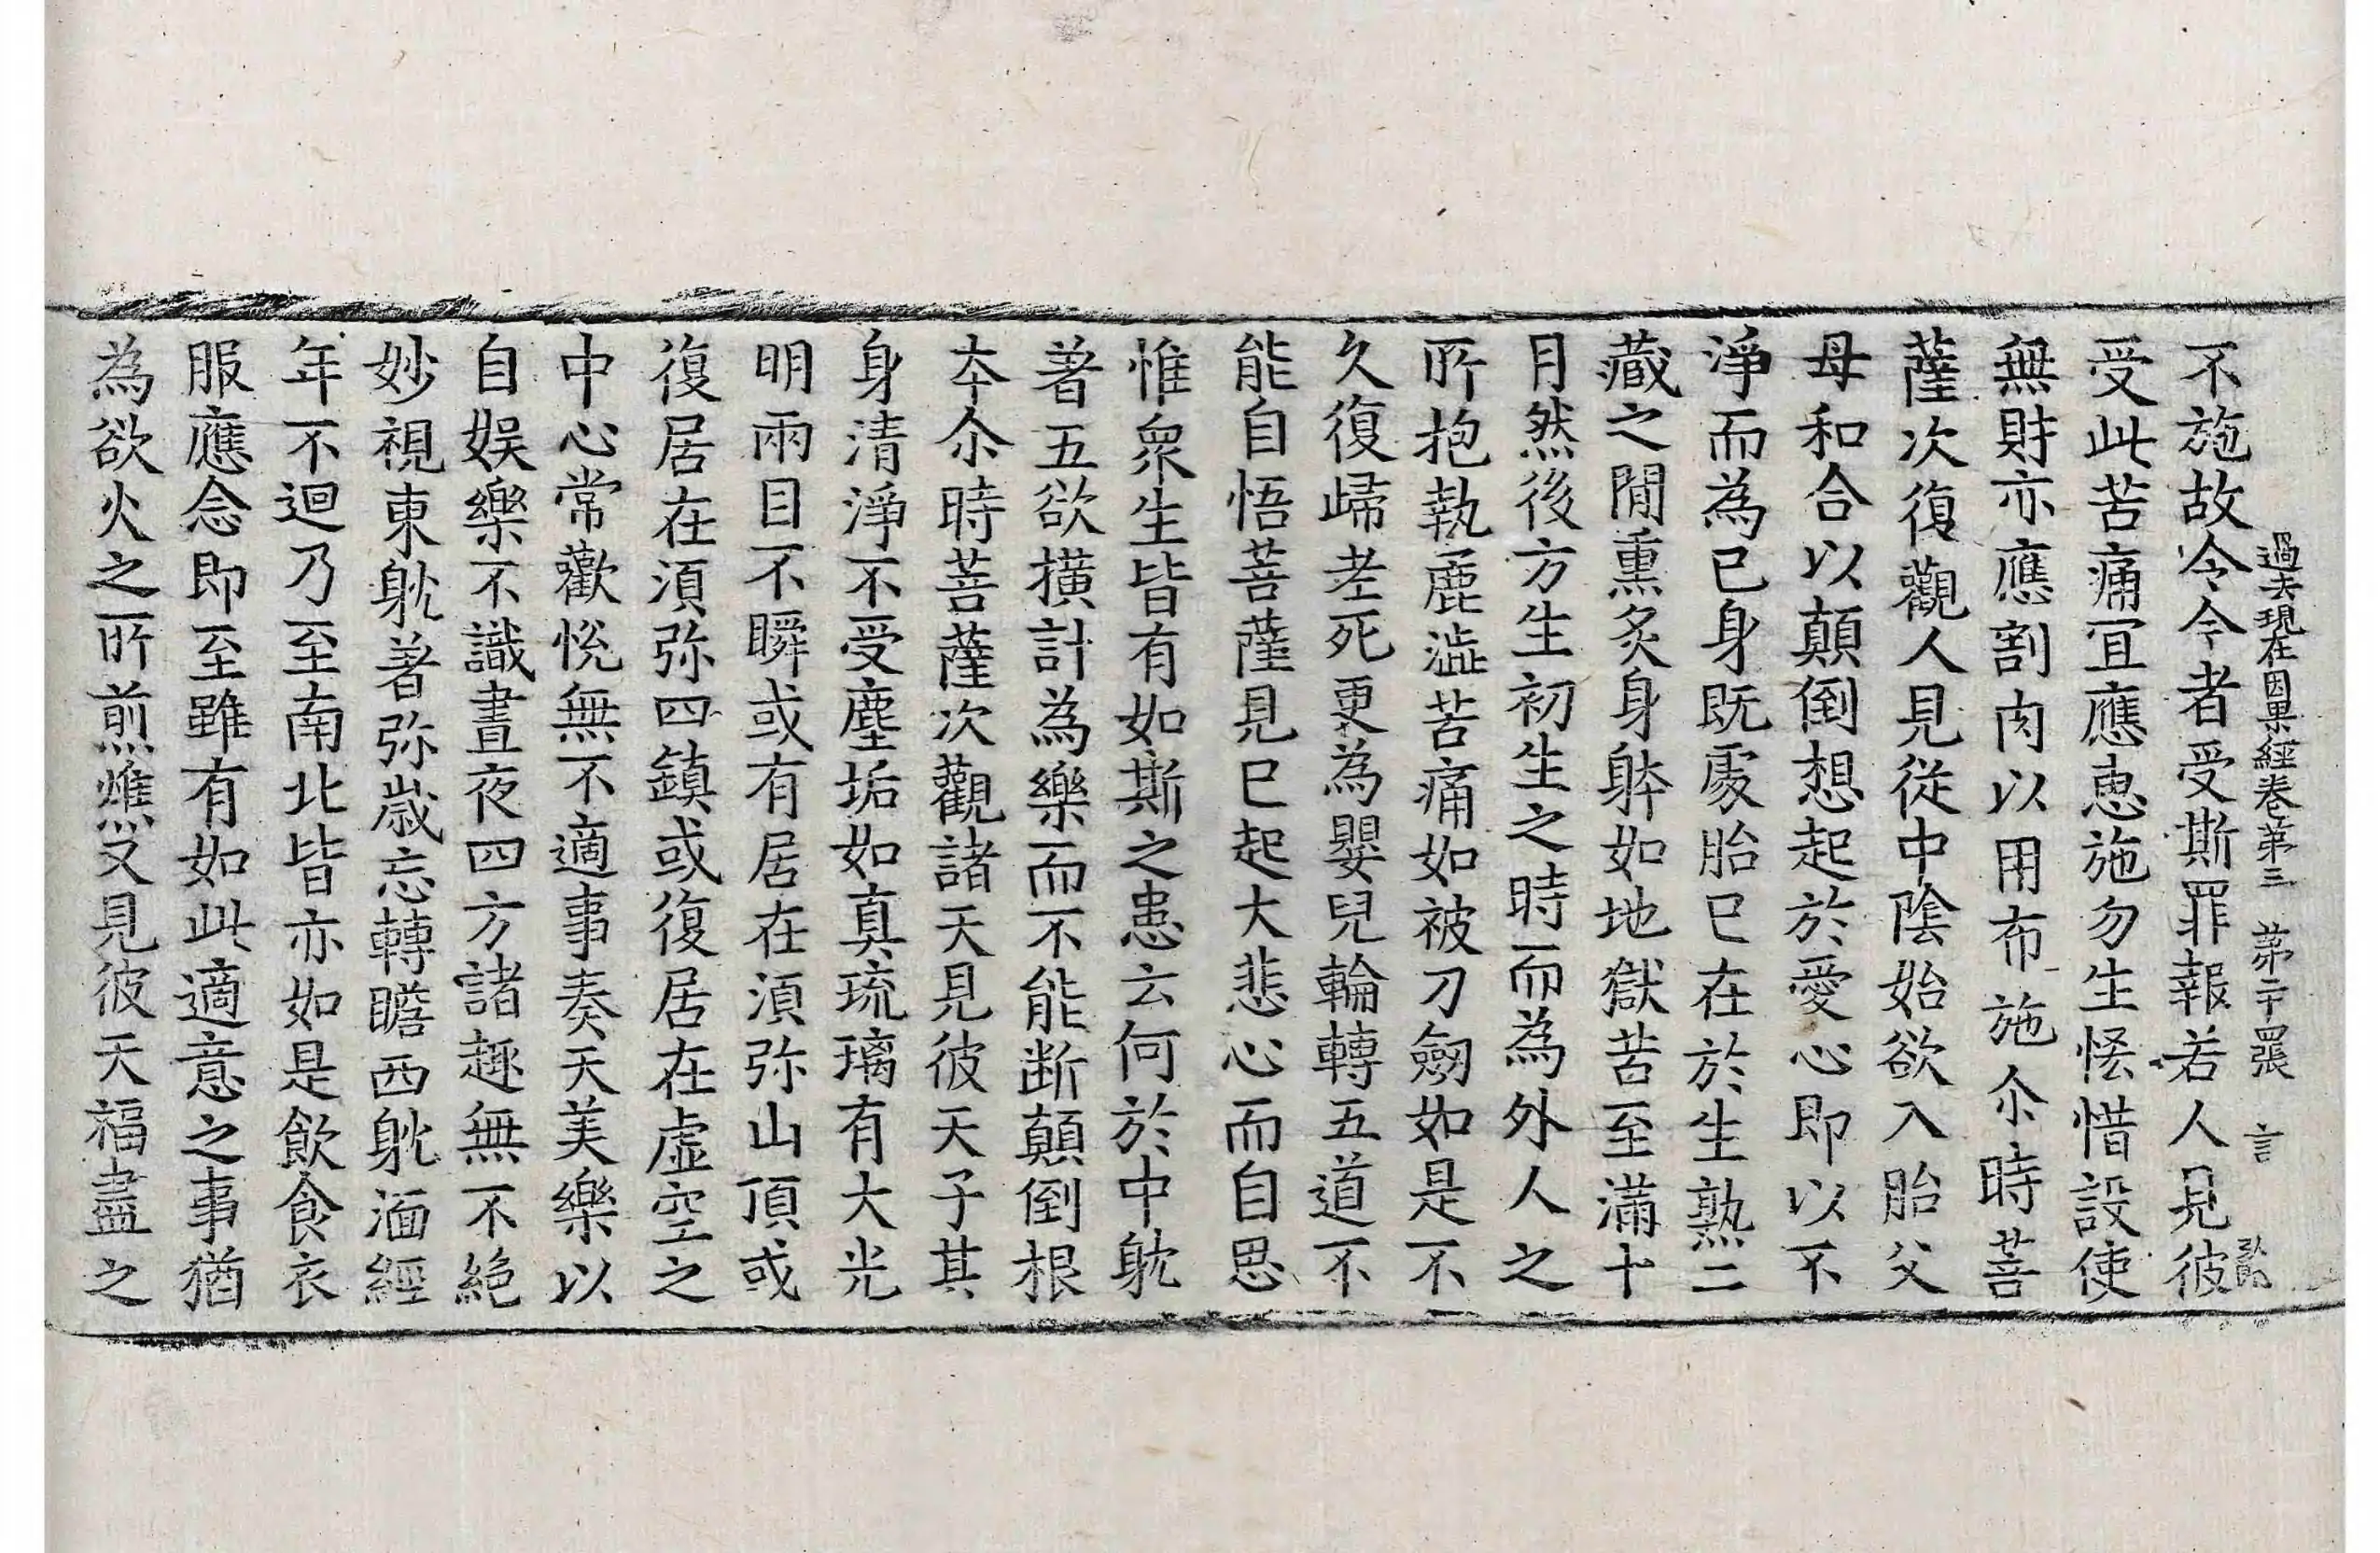 過去現在因果經卷第三 第二十張 言
不施故令今者受斯罪報若人見彼
受此苦痛冝應恵施勿生恡惜設使
無財亦應割肉以用布施尒時菩
薩次復觀人見從中陰始欲入胎父
母和合以顛倒想起於愛心即以不
淨而為已身既處胎已在於生熟二
藏之閒熏炙身躰如地獄苦至滿十
月然後方生初生之時而為外人之
所抱執麁澁苦痛如被刀劒如是不
久復歸老死更為嬰兒輪轉五道不
能自悟菩薩見已起大悲心而自思
惟衆生皆有如斯之患云何於中躭
著五欲撗計為樂而不能断顛倒根
夲尒時菩薩次觀諸天見彼天子其
身清淨不受塵垢如真琉璃有大光
明兩目不瞬或有居在湏弥山頂或
復居在湏弥四鎮或復居在虛空之
中心常歡悅無不適事奏天美樂以
自娛樂不識晝夜四方諸趣無不絕
妙視東躭著弥歲忘轉瞻西躭湎經
年不迴乃至南北皆亦如是飲食衣
服應念即至雖有如此適意之事猶
為欲火之所煎燋又見彼天福盡之